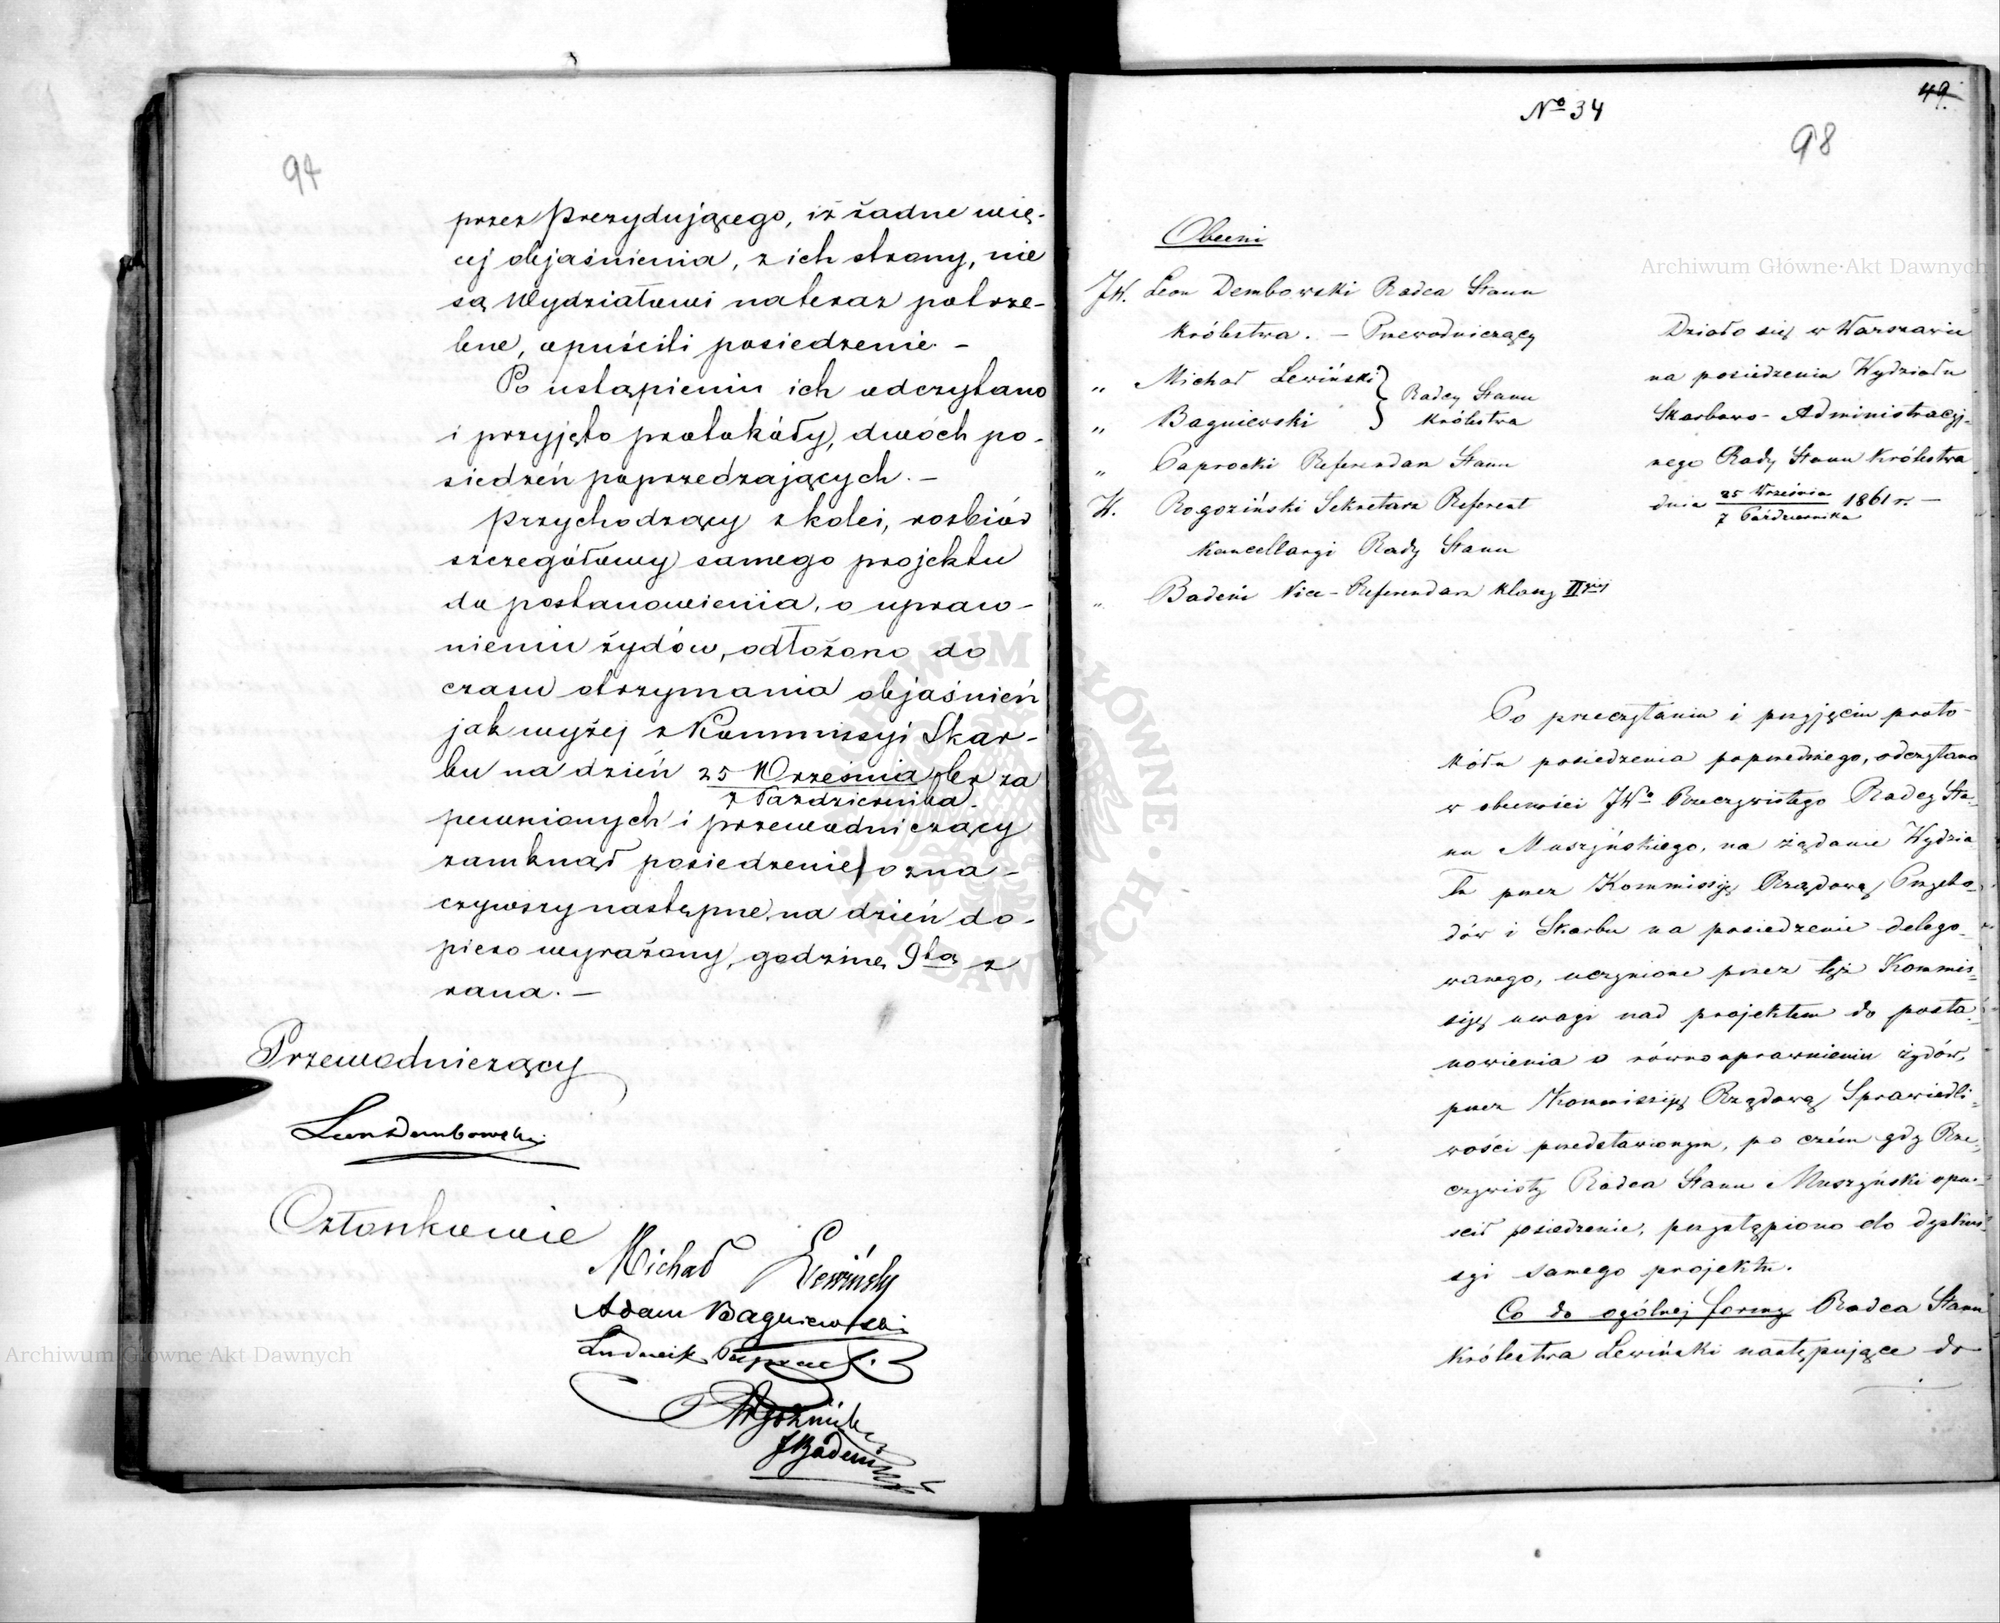 94
przez Prezydującego, iż żadne wię-
cej objaśnienia, z ich strony, nie
są Wydziałowi nateraz potrze-
bne, opuścili posiedzenie. –
Po ustąpieniu ich odczytano
i przyjęto protokóły, dwóch po-
siedzeń poprzedzających. –
Przychodzący z kolei, rozbiór
szczegółowy samego projektu
do postanowienia, o upraw-
nieniu żydów, odłożono do
czasu otrzymania objaśnień
jak wyżej z Kommissyi Skar-
bu na dzień 25 Września / 7 Października br za
pewnionych i przewodniczący
zamknął posiedzenie, ozna-
czywszy następne, na dzień do-
piero wyrażony, godzinę 9tą z
rana. –
Przewodniczący
Leon Dembowski
Członkowie
Michał Lewiński
Adam Bagniewski
Ludwik Paprocki
Rogoziński
J Badeni
49.
Nº 34
98
Obecni
JW. Leon Dembowski Radca Stanu
Królestwa. – Przewodniczący
" Michał Lewiński } Radcy Stanu
" Bagniewski } Królestwa
" Paprocki Referendarz Stanu
W. Rogoziński Sekretarz Referent
Kancellaryi Rady Stanu
" Badeni Vice-Referendarz klassy II
Działo się w Warszawie
na posiedzeniu Wydziału
Skarbowo-Administracyj-
nego Rady Stanu Królestwa
dnia 25 Września / 7 Października 1861 r. –
Po przeczytaniu i przyjęciu proto-
kółu posiedzenia poprzedniego, odczytano
w obecności JWº Rzeczywistego Radcy Sta-
nu Muszyńskiego, na żądanie Wydzia
łu przez Kommissyę Rządową Przycho-
dów i Skarbu na posiedzenie delego-
wanego, uczynione przez tęż Kommis-
syę uwagi nad projektem do posta-
nowienia o równouprawnieniu żydów,
przez Kommissyę Rządową Sprawiedli-
wości przedstawionym, po czém gdy Rze-
czywisty Radca Stanu Muszyński opu-
ścił posiedzenie, przystąpiono do dyskus-
syi samego projektu.
Co do ogólnej formy Radca Stanu
Królestwa Lewiński następujące do
Archiwum Główne Akt Dawnych
Archiwum Główne Akt Dawnych
ARCHIWUM GŁÓWNE AKT DAWNYCH